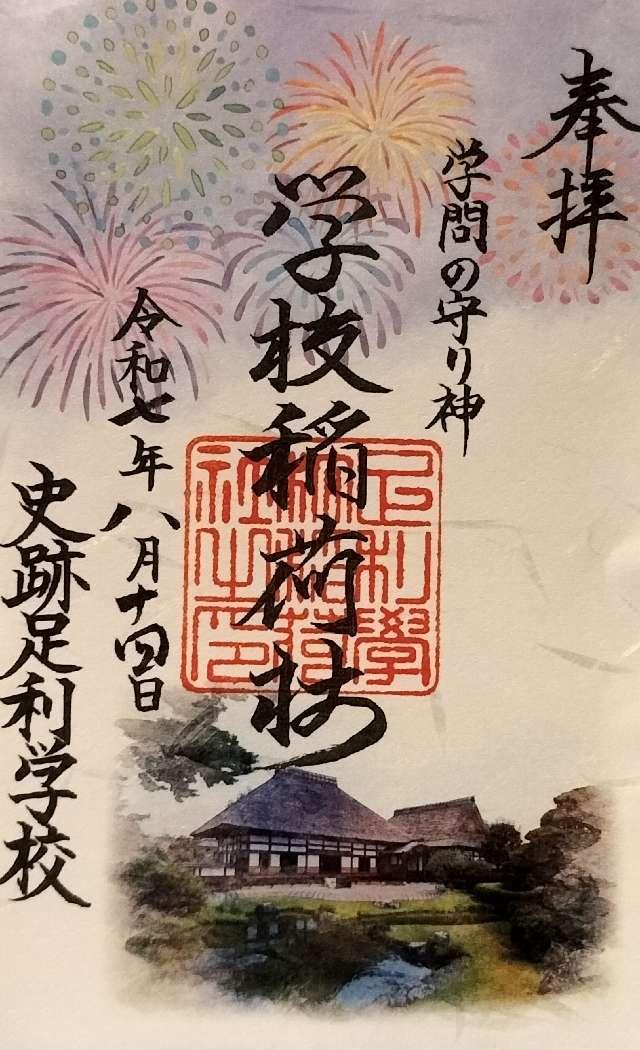 奉拝
学問の守り神
学校稲荷社
令和七年八月十四日
史跡足利学校